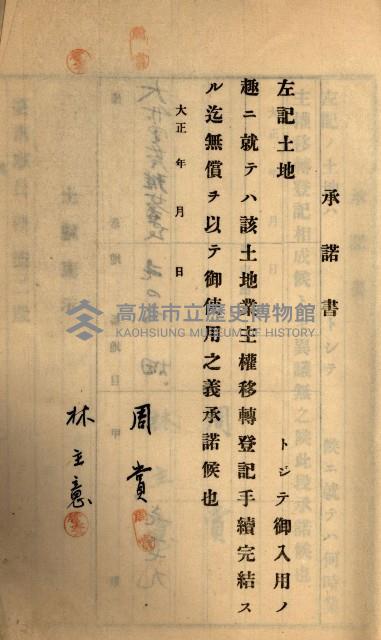 承諾書
左記土地　トシテ御入用ノ
趣ニ就テハ該土地業主權移轉登記手續完結ス
ル迄無償ヲ以テ御使用之義承諾候也
大正　年　月　日
周賞
林主意
高雄市立歷史博物館
KAOHSIUNG MUSEUM OF HISTORY